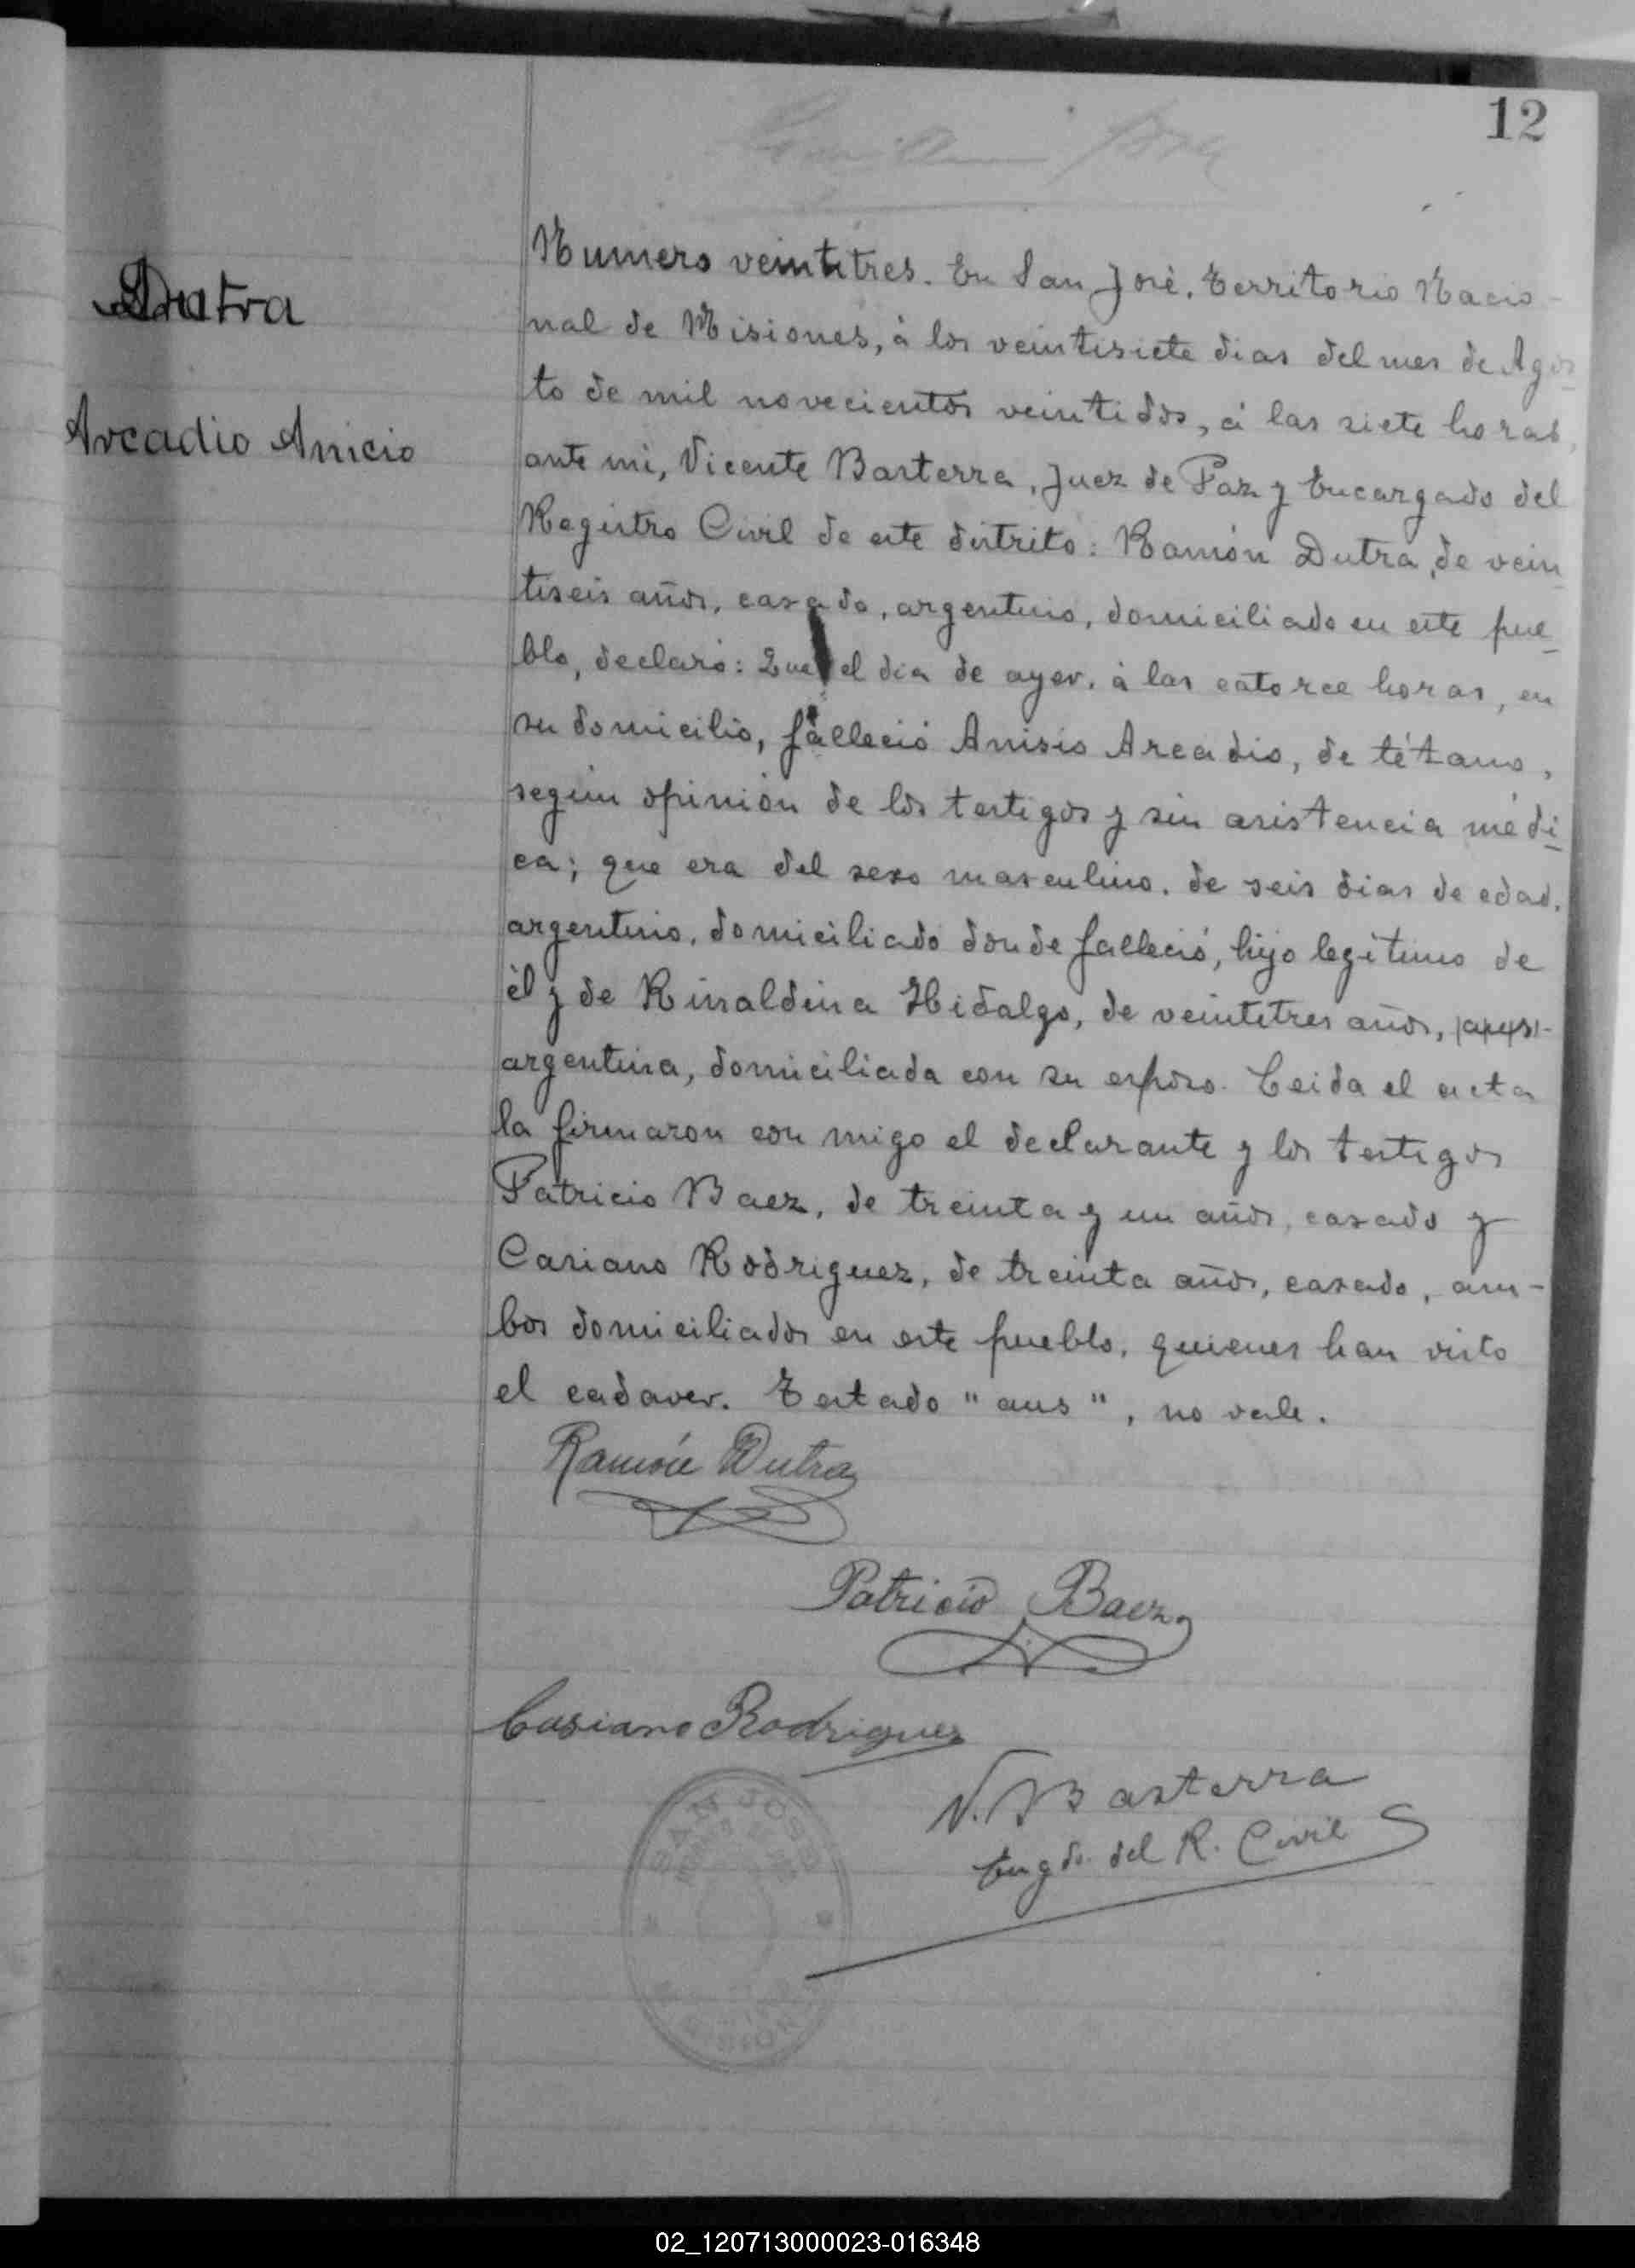 12
Dutra
Arcadio Anicio
Numero veintitres. En San José, Territorio Nacio-
nal de Misiones, à los veintisiete dias del mes de Agos-
to de mil novecientos veintidos, á las siete horas,
ante mi, Vicente Basterra, Juez de Paz y Encargado del
Registro Civil de este distrito: Ramón Dutra, de vein-
tiseis años, casado, argentino, domiciliado en este pue-
blo, declaró: Que el dia de ayer, à las catorce horas, en
su domicilio, falleció Anisio Arcadio, de tétano,
según opinión de los testigos y sin asistencia médi-
ca; que era del sexo masculino, de seis dias de edad,
argentino, domiciliado donde falleció, hijo legítimo de
èl y de Rinaldina Hidalgo, de veintitres años,
argentina, domiciliada con su esposo. Leida el acta
la firmaron con migo el declarante y los testigos
Patricio Baez, de treinta y un años, casado y
Casiano Rodriguez, de treinta años, casado, am-
bos domiciliados en este pueblo, quienes han visto
el cadaver. Testado "aus", no vale.
Ramón Dutra
Patricio Baez
Casiano Rodriguez
V. Basterra
Engdo. del R. Civil
SAN JOSE
MISIONES
02_120713000023-016348